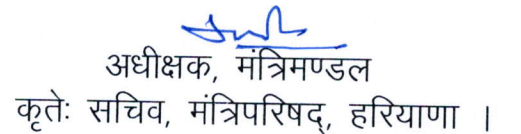 अधीक्षक, मंत्रिमण्डल
कृतेः सचिव, मंत्रिपरिषद्, हरियाणा ।